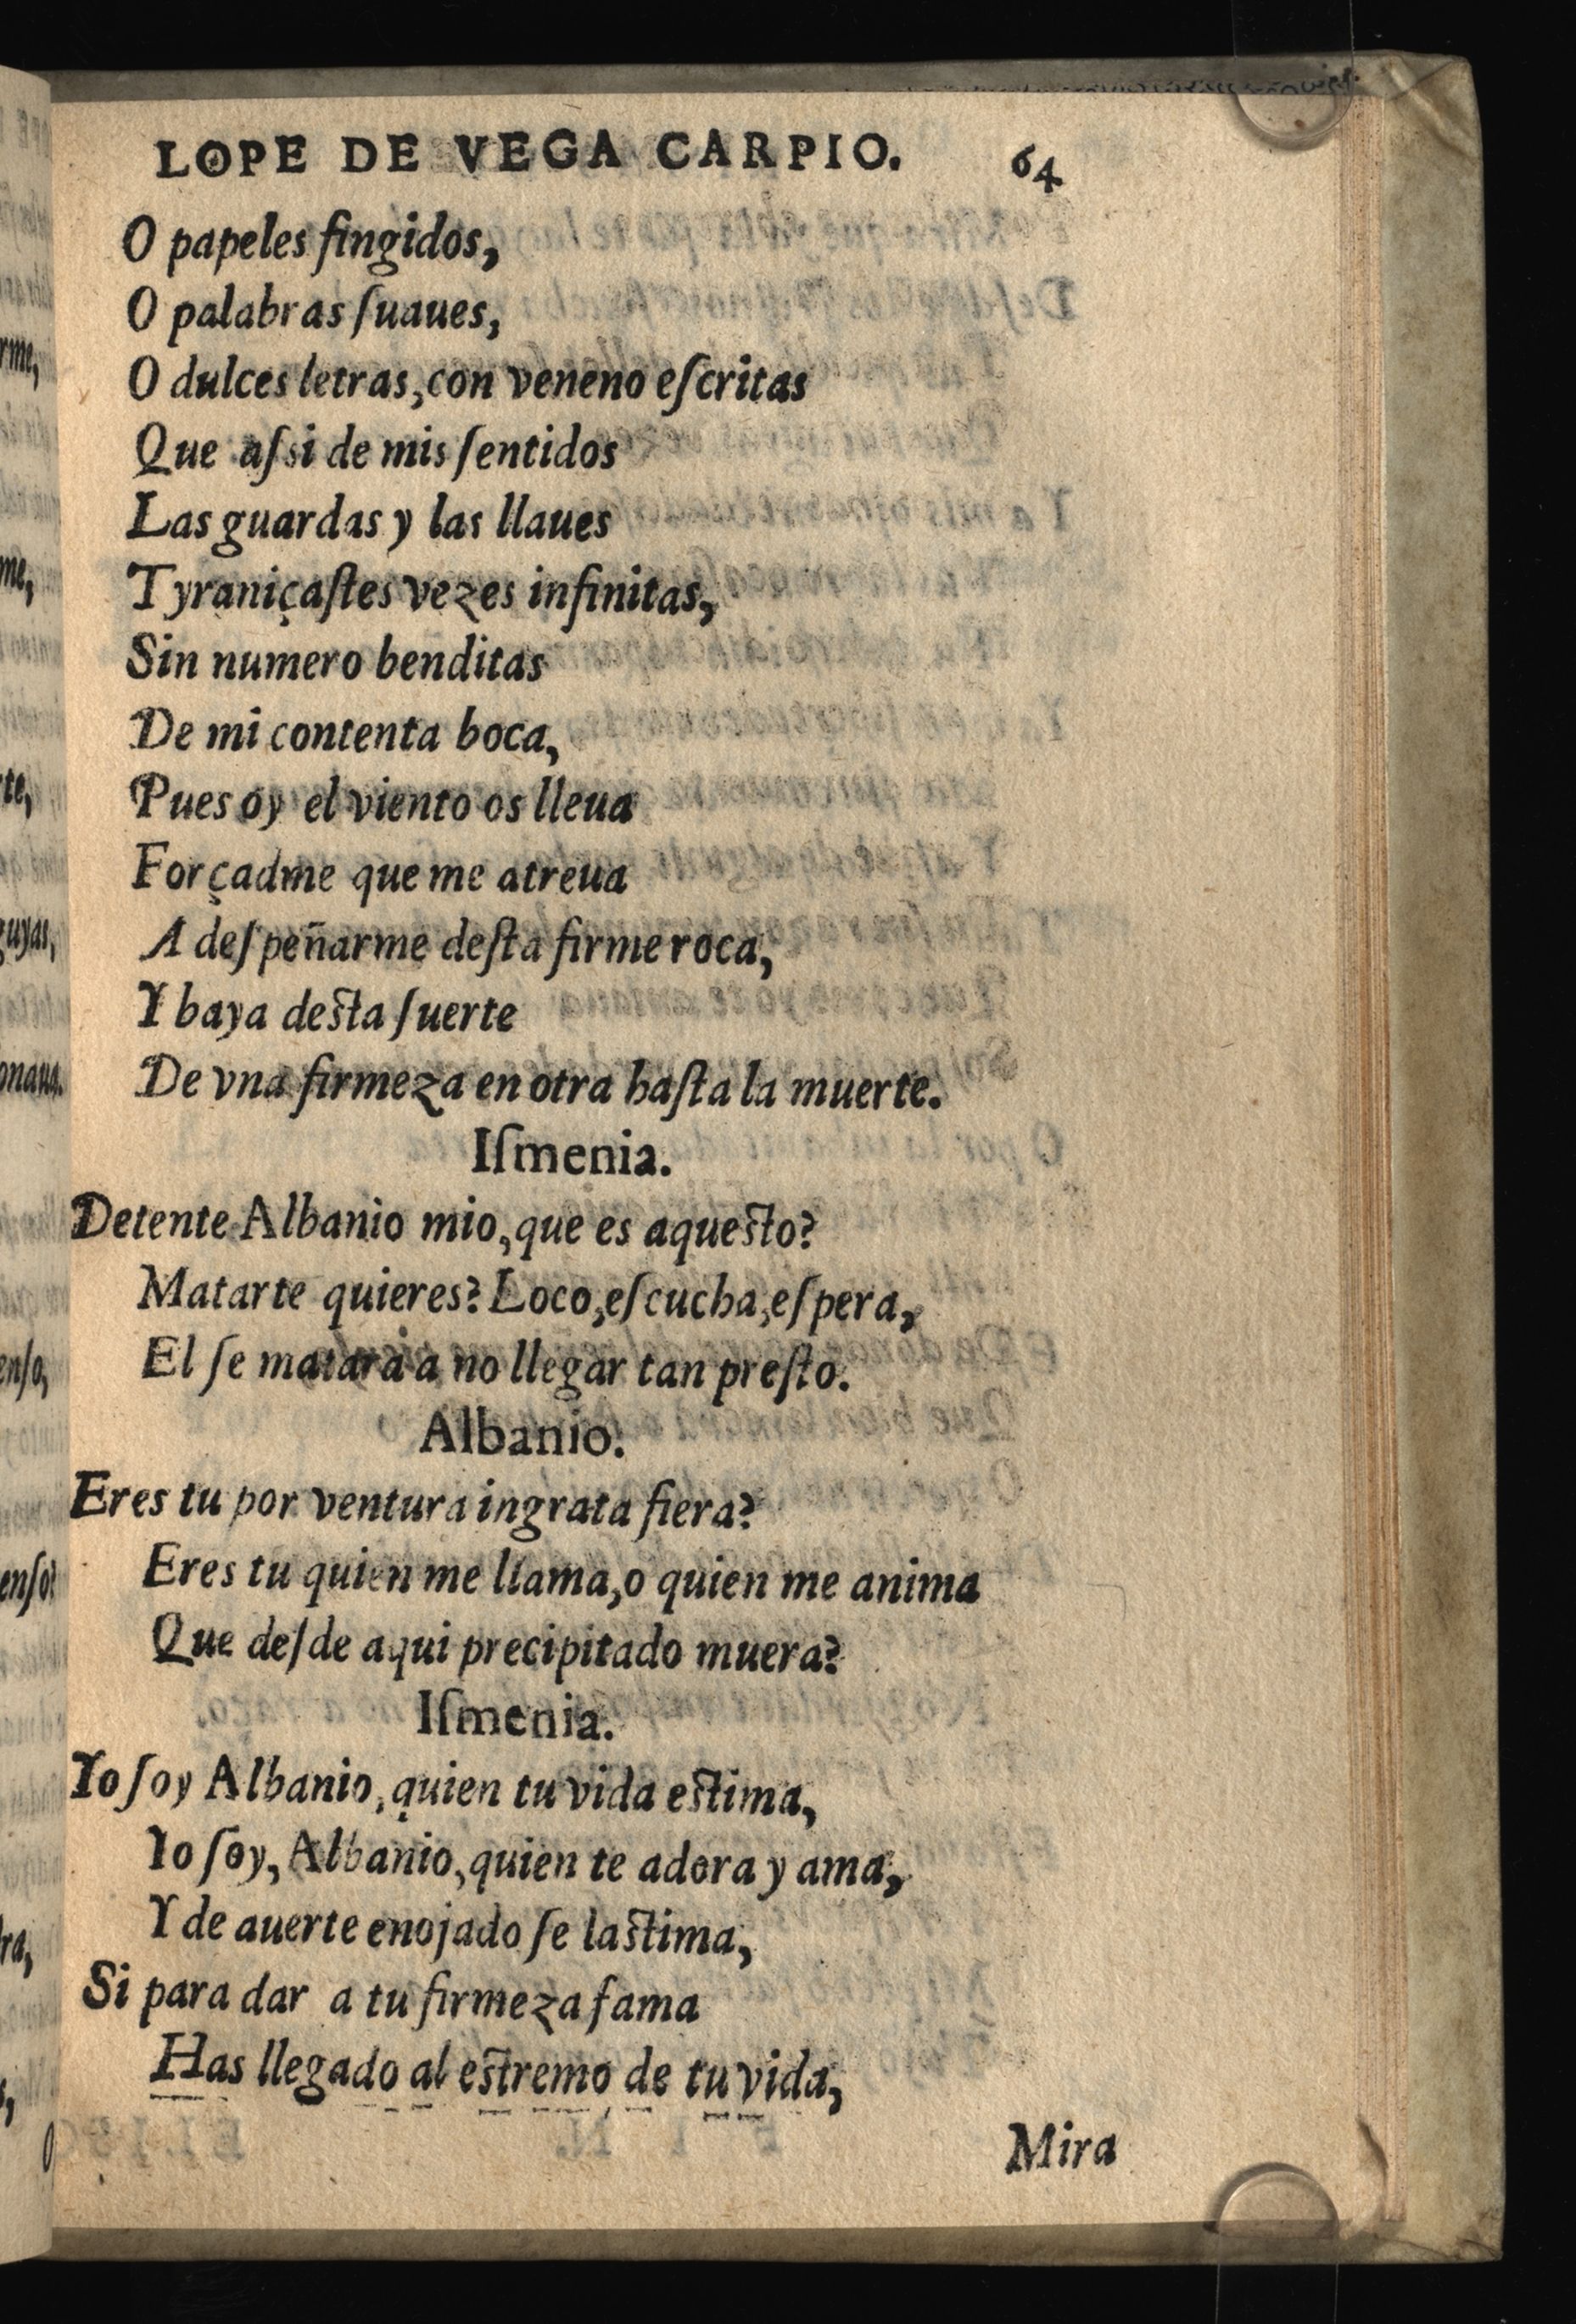 LOPE DE VEGA CARPIO. 64
O papeles fingidos,
O palabras ſuaues,
O dulces letras, con veneno eſcritas
Que aſsi de mis ſentidos
Las guardas y las llaues
Tyraniçaſtes vezes infinitas,
Sin numero benditas
De mi contenta boca,
Pues oy el viento os lleua
Forçadme que me atreua
A deſpeñarme deſta firme roca,
Y baya deſta ſuerte
De vna firmeza en otra haſta la muerte.
Iſmenia.
Detente Albanio mio, que es aqueſto?
Matarte quieres? Loco, eſcucha, eſpera,
El ſe matara a no llegar tan preſto.
Albanio.
Eres tu por ventura ingrata fiera?
Eres tu quien me llama, o quien me anima
Que deſde aqui precipitado muera?
Iſmenia.
Yo ſoy Albanio, quien tu vida eſtima,
Yo ſoy, Albanio, quien te adora y ama,
Y de auerte enojado ſe laſtima,
Si para dar a tu firmeza fama
Has llegado al eſtremo de tu vida,
Mira